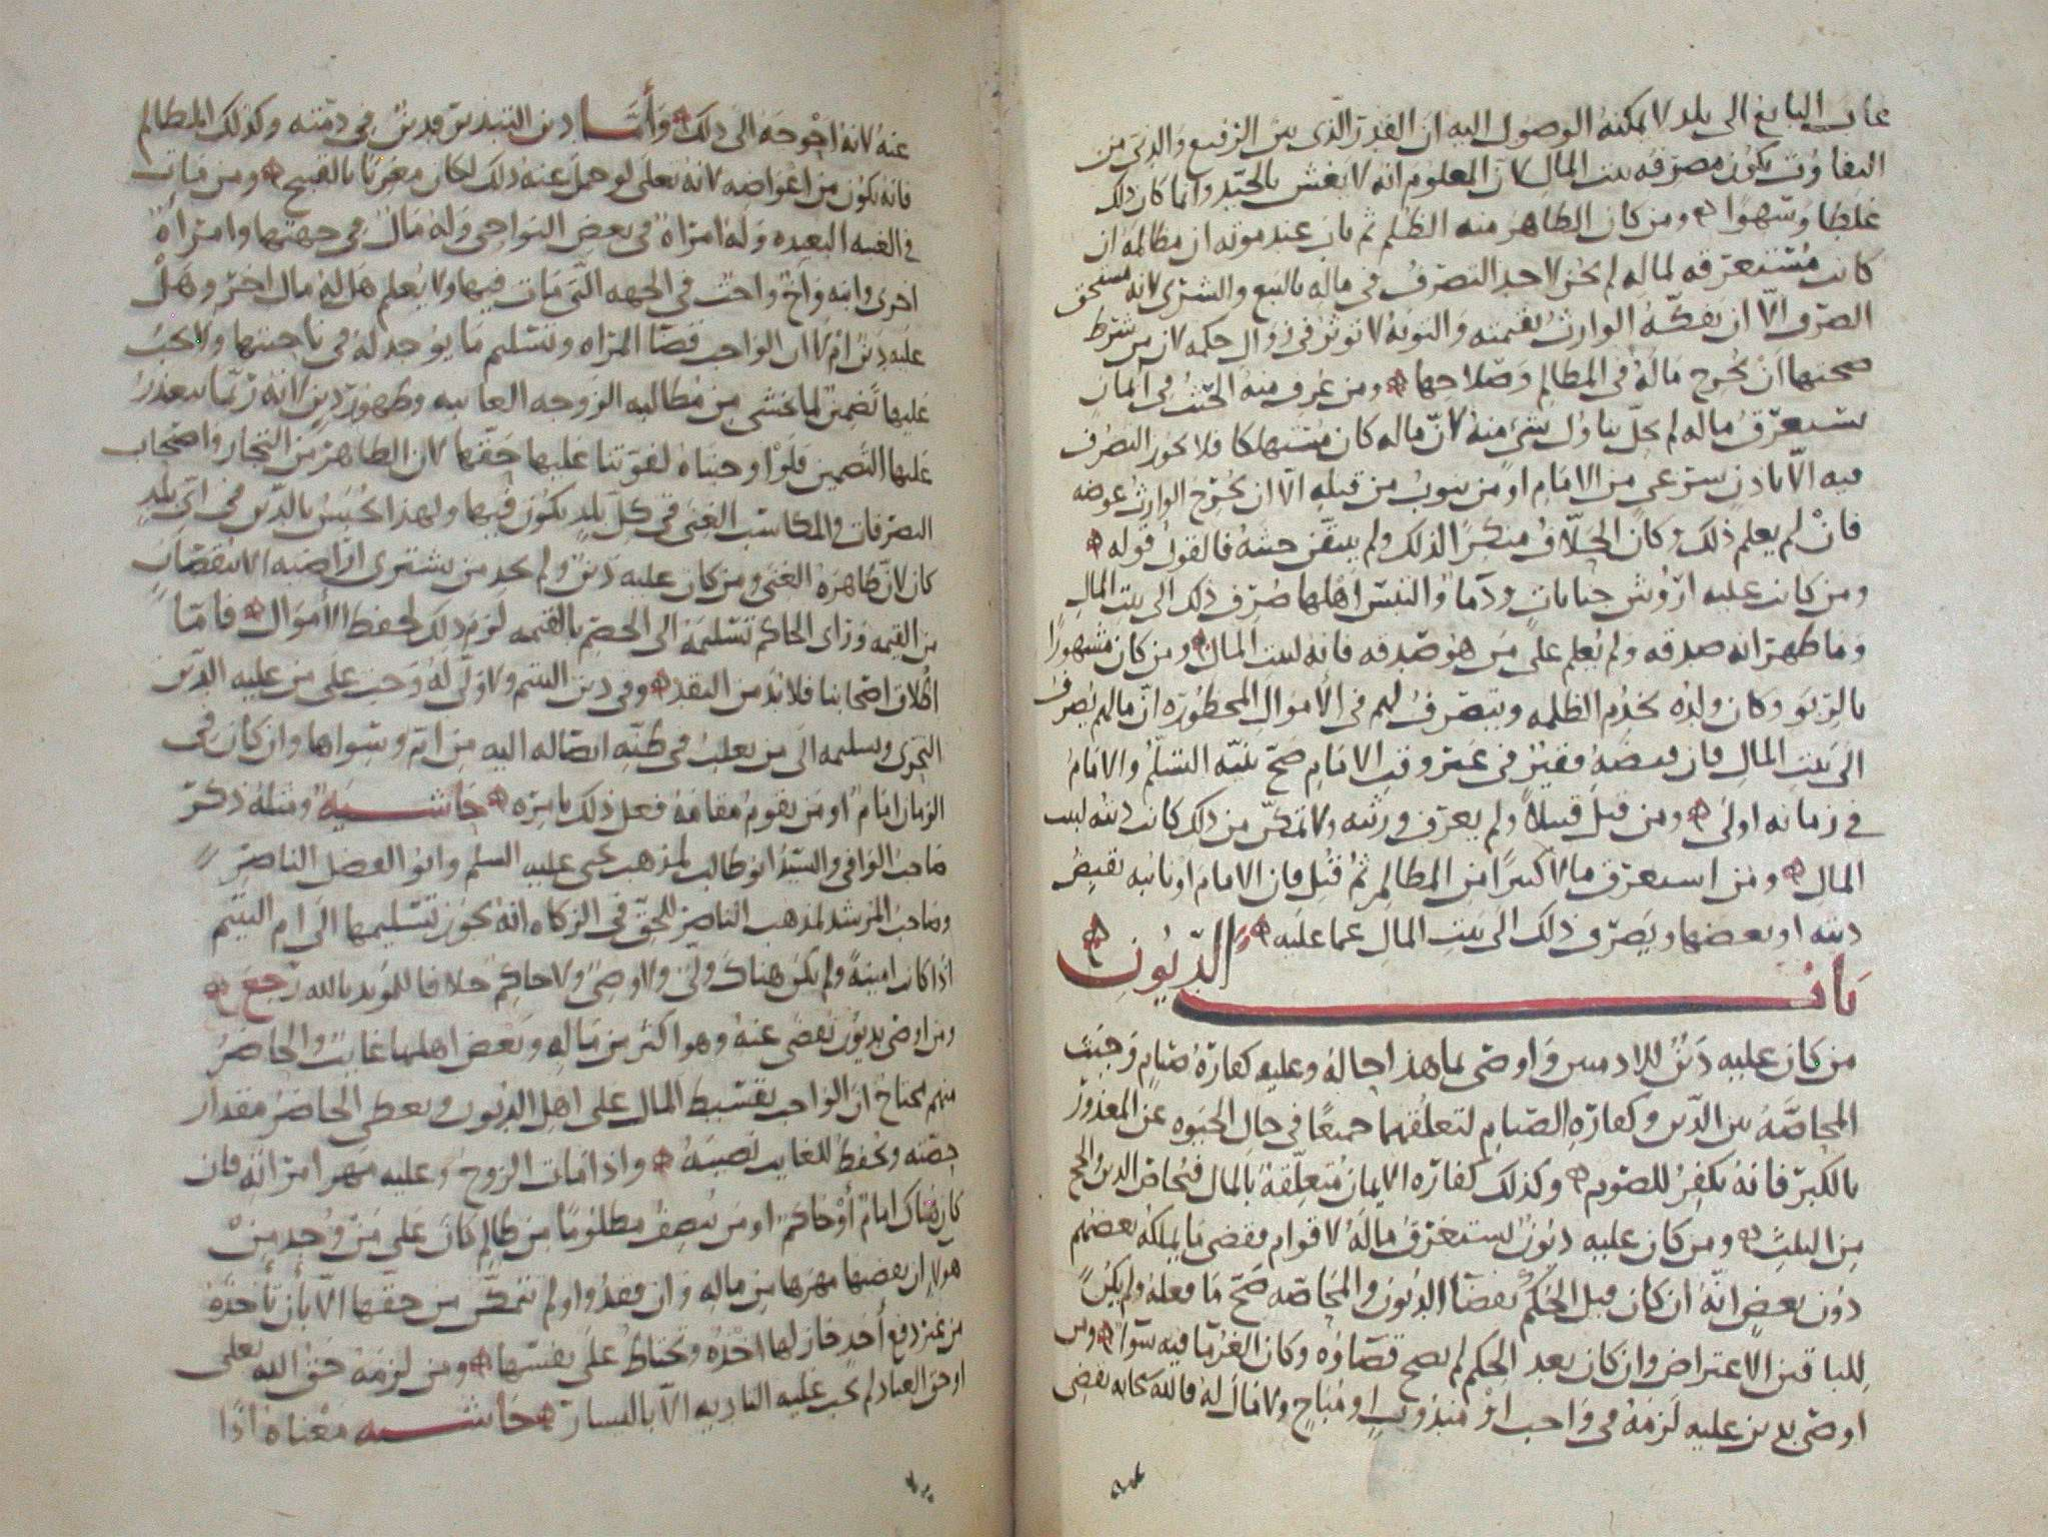 غاب البايع الى بلد لا يمكنه الوصول اليه ان القدر الذي بين الرفيع والدني من
التفاوت يكون مصرفه بيت المال لان المعلوم انه لا يغش بالجيد وانما كان ذلك
غلطا وسهوا ومن كان الظاهر منه الظلم ثم بان عند موته ان مظالمه ان
كانت مستغرقه لماله لم يجز لاحد التصرف في ماله بالبيع والشرى لانه مستحق
الصرف الا ان يفكه الوارث بقيمته والتوبه لا توثر في زوال حكمه لان من شرط
صحتها ان يخرج ماله في المظالم وصلاحها ومن عرف منه الخبث في المال
يستغرق ماله لم يحل تناول شي منه لان ماله كان مستهلكا فلا يجوز التصرف
فيه الا باذن شرعي من الامام او من ينوب من قبله الا ان يخرج الوارث عوضه
فان لم يعلم ذلك وكان الحلاف منكرا لذلك ولم يتيقن حنثه فالقول قوله
ومن كانت عليه اروش جنايات ودما والتبس اهلها صرف ذلك الى بيت المال
وما ظهر انه صدقه ولم يعلم على من هو صدقه فانه لبيت المال ومن كان مشهورا
بالربو وكان ولده يخدم الظلمه ويتصرف لهم في الاموال المحظوره ان مالهم يصرف
الى بيت المال فان قبضه فقير في غير وقت الامام صح بنيه التسلم والامام
في زمانه اولى ومن قتل قتيلا ولم يعرف ورثته ولا تمكن من ذلك كانت ديته لبيت
المال ومن استغرق مالا كثيرا من المظالم ثم قتل فان الامام او نائبه يقبض
ديته او بعضها ويصرف ذلك الى بيت المال عما عليه
باب الديون
من كان عليه دين للادميين واوصى بما هذا حاله وعليه كفارة صيام وجبت
المحاصه بين الدين وكفاره الصيام لتعلقهما جميعا في حال الحيوه عن المعذور
بالكبر فانه يكفر للصوم وكذلك كفاره الايمان متعلقة بالمال فيحاص الدين والحج
من الثلث ومن كان عليه ديون تستغرق ماله لاقوام فقضى ما يملكه بعضهم
دون بعض انه ان كان قبل الحكم بقضا الديون والمحاصه صح ما فعله ولم يكن
للباقين الاعتراض وان كان بعد الحكم لم يصح قضاؤه وكان الغرما فيه سوا ومن
اوصى بدين عليه لزمه في واجب او مندوب او مباح ولا مال له فالله سبحانه يقضي
عنه لانه احوجه الى ذلك واما دين التبذير فدين في ذمته وكذلك المظالم
فانه يكون من اعواضه لانه تعلى لو حمل عنه ذلك لكان مغريا بالقبيح ومن مات
في الغيبه البعيده وله امراة في بعض النواحي وله مال في جهتها وامراة
اخرى وابنه واخ واخت في الجهه التي مات فيها ولا يعلم هل له مال اخر وهل
عليه دين ام لا ان الواجب قضا المراه وتسليم ما يوجد له في ناحيتها ولا يجب
عليها تضمين لما يخشى من مطالبه الزوجه الغائبه وظهور دين لانه ربما يتعذر
عليها التضمين فلو اوجبناه لفوتنا عليها حقها لان الظاهر من التجار واصحاب
التصرفات والمكاسب الغنى في كل بلد يكون فيها ولهذا يحبس بالدين في اي بلد
كان لان ظاهره الغنى ومن كان عليه دين ولم يجد من يشتري اراضيه الا بنقصان
من القيمه وراى الحاكم تسليمه الى الخصم بالقيمه لزم ذلك لحفظ الاموال فاما
اطلاق اصحابنا فلا بد من النقد وفي دين اليتيم ولا ولي له وجب على من عليه الدين
التحري وتسليمه الى من يغلب في ظنه ايصاله اليه من ام وسواها وان كان في
الزمان امام او من يقوم مقامه فعل ذلك بامره حاشيه ومثله ذكر
صاحب الوافي والسيد ابو طالب لمذهب يحيى عليه السلم وابو الفضل الناصر
وصاحب المرشد لمذهب الناصر للحق في الزكاه انه يجوز تسليمها الى ام اليتيم
اذا كانت امينة ولم يكن هناك ولي ولا وصي ولا حاكم خلافا للمويد بالله رجع
ومن اوصى بديون تقضى عنه وهو اكثر من ماله وبعض اهلها غايب والحاضر
منهم يحتاج ان الواجب تقسيط المال على اهل الديون ويعطى الحاضر مقدار
حصته ويحفظ للغايب نصيبه واذا مات الزوج وعليه مهر امراته فان
كان هناك امام او حاكم او من ينصف مظلوما من ظالم كان على من وجد من
هولا ان يعطيها مهرها من ماله وان فقدوا ولم تتمكن من حقها الا بان تاخذه
من غير دفع احد جاز لها اخذه وتحتاط على نفسها ومن لزمه حق الله تعلى
او حق العباد لم يجب عليه التاديه الا باليسار حاشيه معناه اذا